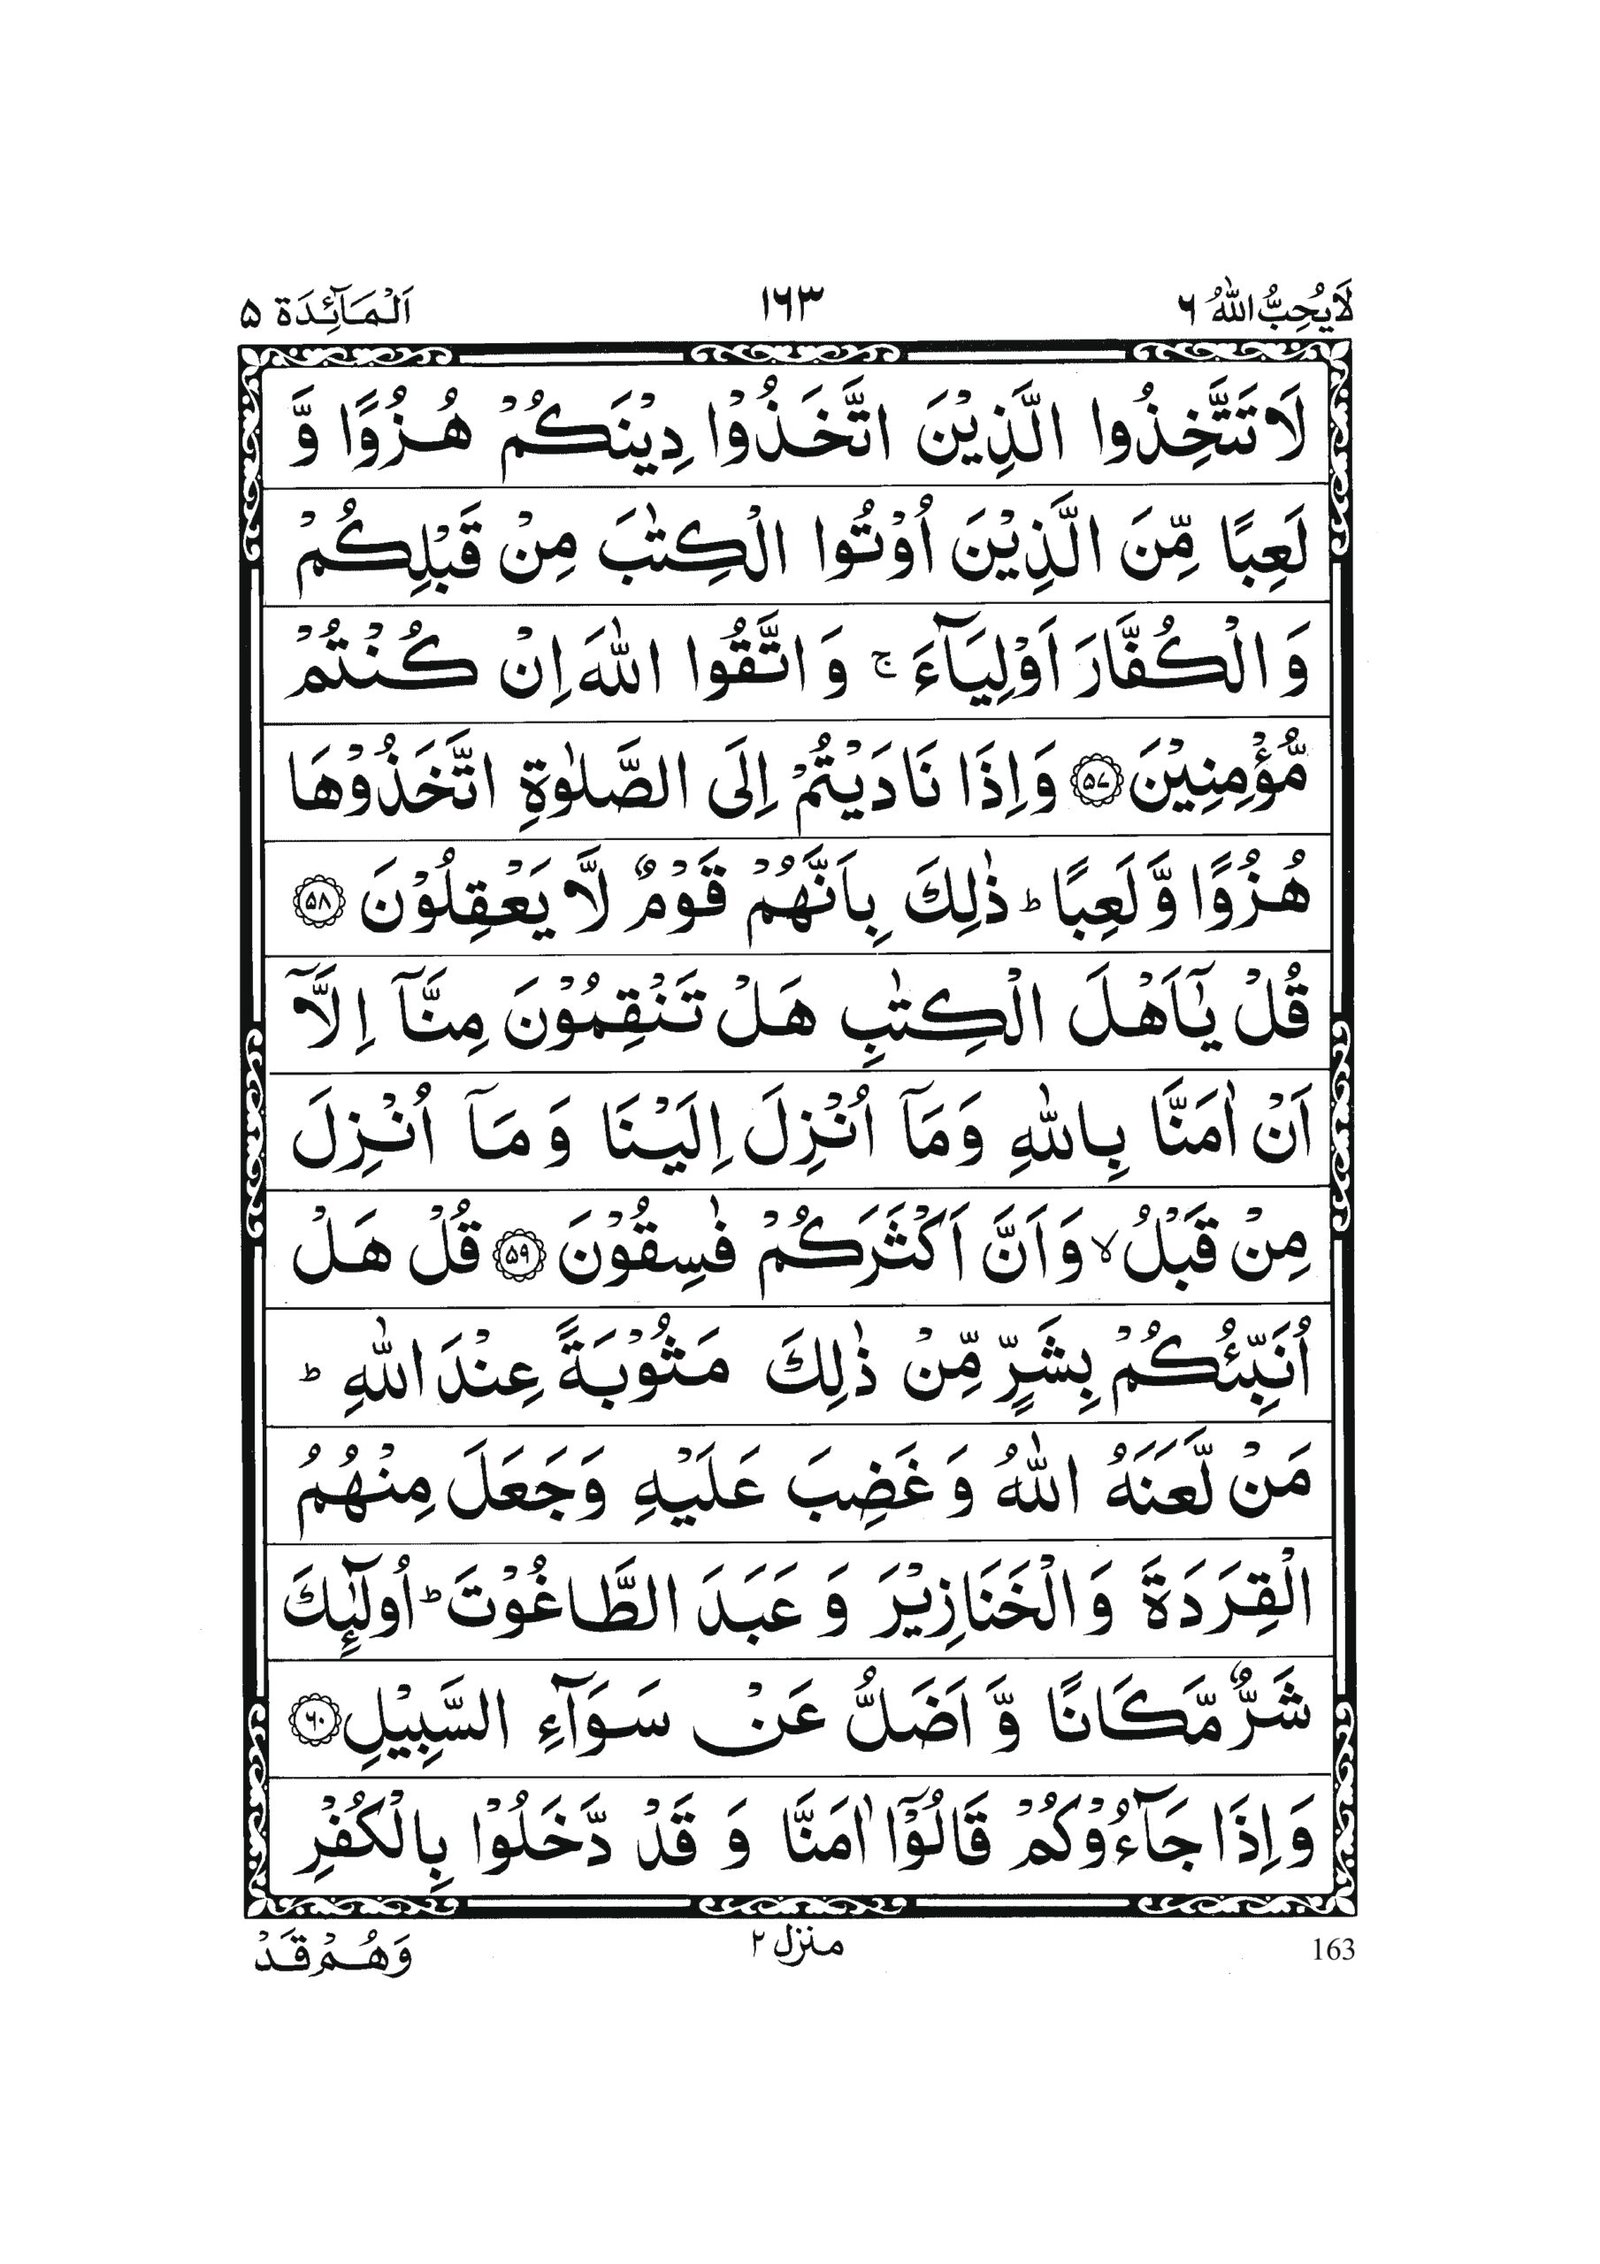 لَايُحِبُّ اللهُ ٦ ١٦٣ اَلْمَآئِدَة ۵
لَا تَتَّخِذُوا الَّذِيْنَ اتَّخَذُوْا دِيْنَكُمْ هُزُوًا وَّ
لَعِبًا مِّنَ الَّذِيْنَ اُوْتُوا الْكِتٰبَ مِنْ قَبْلِكُمْ
وَالْكُفَّارَ اَوْلِيَآءَ ۚ وَاتَّقُوا اللّٰهَ اِنْ كُنْتُمْ
مُّؤْمِنِيْنَ ﴿۵۷﴾ وَاِذَا نَادَيْتُمْ اِلَى الصَّلٰوةِ اتَّخَذُوْهَا
هُزُوًا وَّلَعِبًا ؕ ذٰلِكَ بِاَنَّهُمْ قَوْمٌ لَّا يَعْقِلُوْنَ ﴿۵۸﴾
قُلْ يٰۤاَهْلَ الْكِتٰبِ هَلْ تَنْقِمُوْنَ مِنَّاۤ اِلَّاۤ
اَنْ اٰمَنَّا بِاللّٰهِ وَمَاۤ اُنْزِلَ اِلَيْنَا وَمَاۤ اُنْزِلَ
مِنْ قَبْلُ ۙ وَاَنَّ اَكْثَرَكُمْ فٰسِقُوْنَ ﴿۵۹﴾ قُلْ هَلْ
اُنَبِّئُكُمْ بِشَرٍّ مِّنْ ذٰلِكَ مَثُوْبَةً عِنْدَ اللّٰهِ ؕ
مَنْ لَّعَنَهُ اللّٰهُ وَغَضِبَ عَلَيْهِ وَجَعَلَ مِنْهُمُ
الْقِرَدَةَ وَالْخَنَازِيْرَ وَعَبَدَ الطَّاغُوْتَ ؕ اُولٰٓئِكَ
شَرٌّ مَّكَانًا وَّاَضَلُّ عَنْ سَوَآءِ السَّبِيْلِ ﴿۶۰﴾
وَاِذَا جَآءُوْكُمْ قَالُوْۤا اٰمَنَّا وَقَدْ دَّخَلُوْا بِالْكُفْرِ
163 منزل ٢ وَهُمْ قَدْ